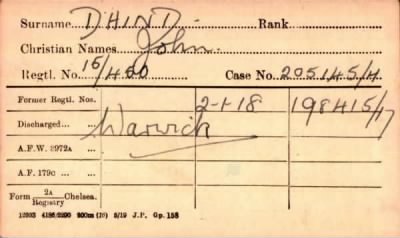 Surname DHIND. Rank
Christian Names John.
Regtl. No. 15/400 Case No. 205145/H
Former Regtl. Nos. 2-1-18 198415/17
Discharged... ... Warwick
A.F.W. 3972A ...
A.F. 179C ... ...
Form 2A/Registry Chelsea.
12933 4186/2290 900m (10) 5/19 J.P. Gp. 158